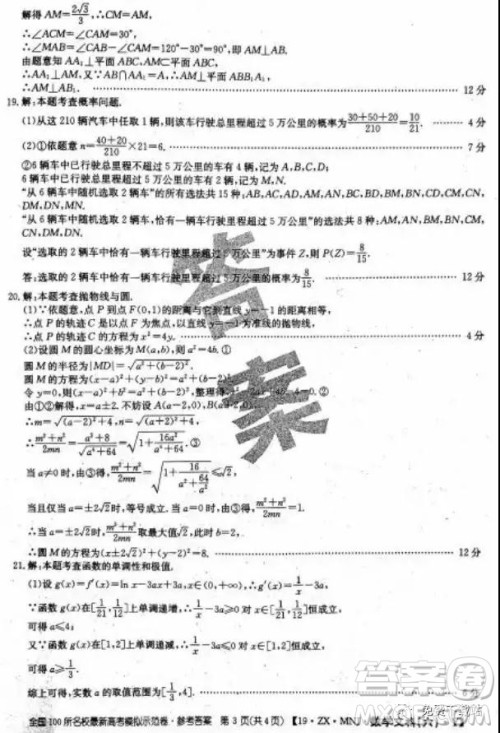 解得AM=2√3/3,∴CM=AM,
∴∠ACM=∠CAM=30°,
∴∠MAB=∠CAB-∠CAM=120°-30°=90°,即AB⊥AM.
由题意知AA₁⊥平面ABC,AM⊂平面ABC,
∴AA₁⊥AM.又∵AB∩AA₁=A,
∴AM⊥平面AA₁B₁B. 12分
19.解:本题考查概率问题.
(1)从这210辆汽车中任取1辆,则该车行驶总里程超过5万公里的概率为(30+50+20)/210=10/21. 4分
(2)①依题意n=(40+20)/210×21=6. 7分
②6辆车中已行驶总里程不超过5万公里的车有4辆,记为A,B,C,D;
6辆车中已行驶总里程超过5万公里的车有2辆,记为M,N.
“从6辆车中随机选取2辆车”的所有选法共15种:AB,AC,AD,AM,AN,BC,BD,BM,BN,CD,CM,CN,
DM,DN,MN.
“从6辆车中随机选取2辆车,恰有一辆车行驶里程超过5万公里”的选法共8种:AM,AN,BM,BN,CM,CN,
DM,DN.
设“选取的2辆车中恰有一辆车行驶里程超过5万公里”为事件Z,则P(Z)=8/15.
答:选取的2辆车中恰有一辆车行驶里程超过5万公里的概率为8/15. 12分
20.解:本题考查抛物线与圆.
(1)∵依题意,点P到点F(0,1)的距离与它到直线y=-1的距离相等,
∴点P的轨迹C是以点F为焦点,以直线y=-1为准线的抛物线,
∴点P的轨迹C的方程为x²=4y. 4分
(2)设圆M的圆心坐标为M(a,b),则a²=4b. ①
圆M的半径为|MD|=√(a²+(b-2)²).
圆M的方程为(x-a)²+(y-b)²=a²+(b-2)².
令y=0,则(x-a)²+b²=a²+(b-2)². ②
由①②解得,x=a±2.不妨设A(a-2,0),B(a+2,0),
∴m=√((a-2)²+4),n=√((a+2)²+4),
∴(m²+n²)/2mn=(a²+8)/√(a⁴+64)=√(1+16a²/(a⁴+64)). ③
当a≠0时,由③得,(m²+n²)/2mn=√(1+16/(a²+64/a²))≤√2.
当且仅当a=±2√2时,等号成立.当a=0时,由③得,(m²+n²)/2mn=1.
∴当a=±2√2时,(m²+n²)/2mn取最大值√2,此时b=2,
∴圆M的方程为(x±2√2)²+(y-2)²=8. 12分
21.解:本题考查函数的单调性和极值.
(1)设g(x)=f′(x)=ln x-3ax+3a,∴g′(x)=1/x-3a,
∵函数g(x)在[1/21,1/12]上单调递增,∴1/x-3a≥0在[1/21,1/12]恒成立,
可得a≤4;
又∵函数g(x)在[1,2]上单调递减,∴1/x-3a≤0在[1,2]恒成立,
可得a≥1/3.
综上可得,实数a的取值范围为[1/3,4]. 6分
全国100所名校最新高考模拟示范卷·参考答案 第3页(共4页)【19·ZX·MNJ
答案